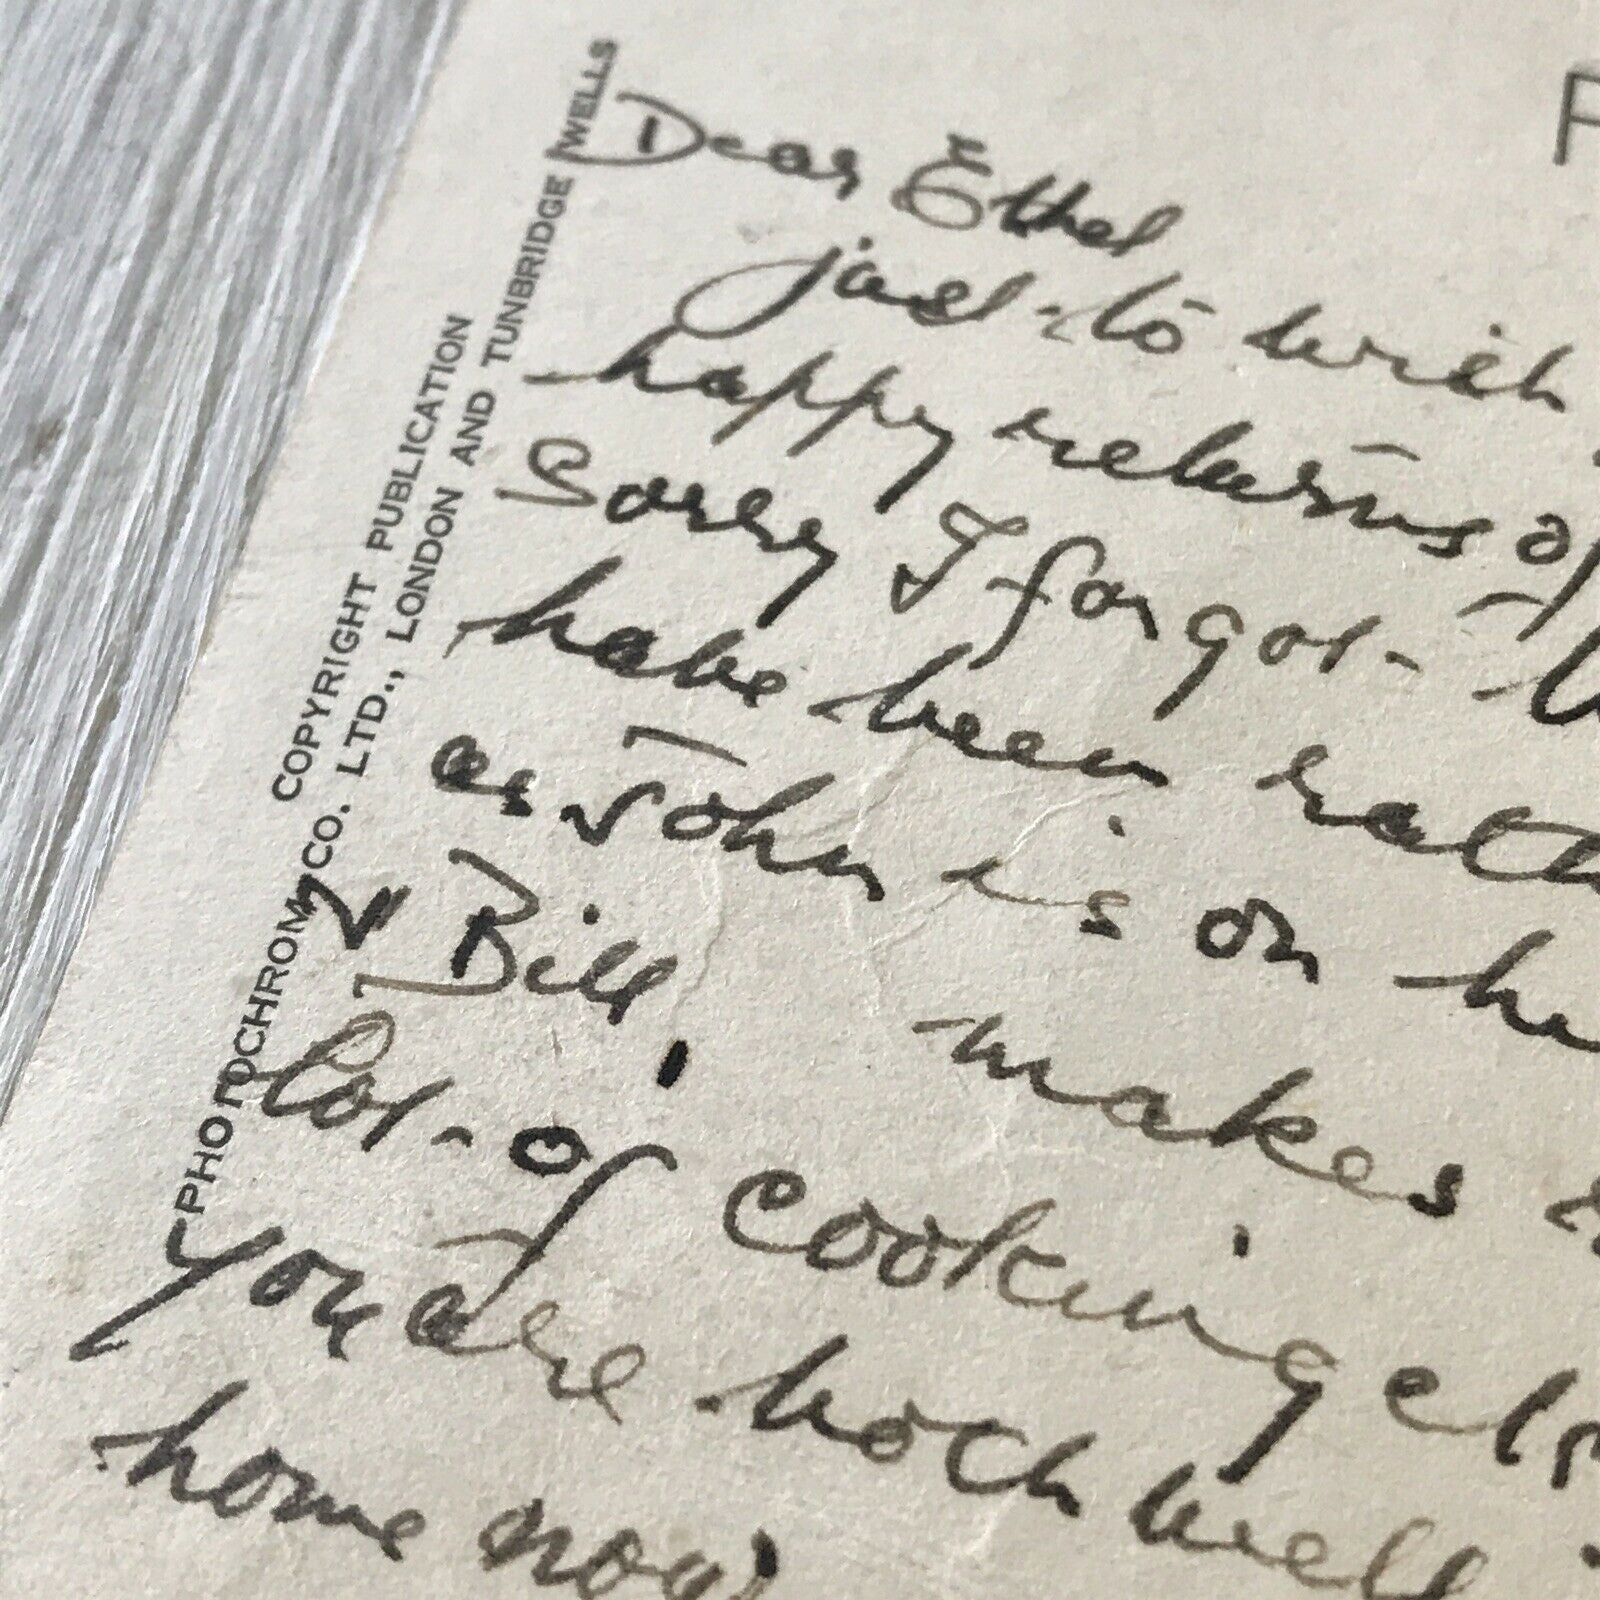 COPYRIGHT PUBLICATION
PHOTOCHROM CO. LTD., LONDON AND TUNBRIDGE WELLS
Dear Ethel
just to wish
happy returns of
Sorry I forgot
have been rath
as John is on h
& Bill. makes
lot of cooking etc
you are both well
home now